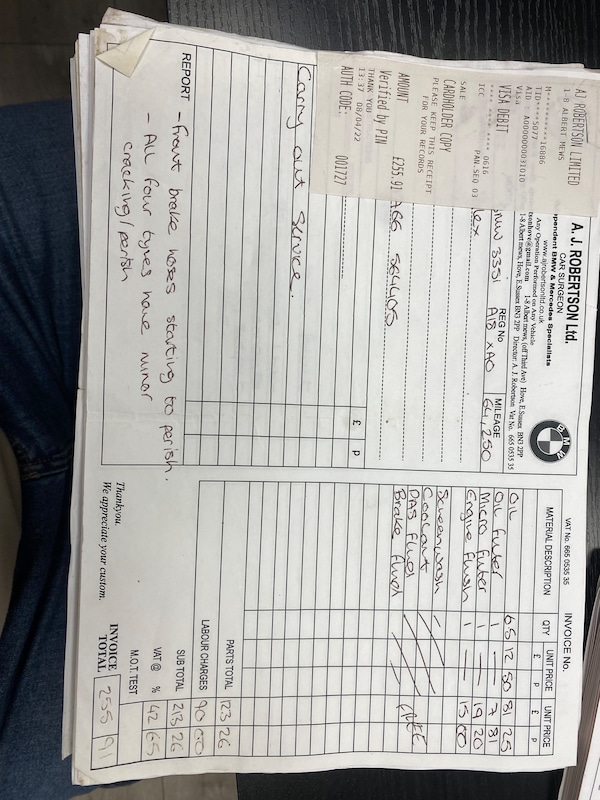 AJ ROBERTSON LIMITED
1-8 ALBERT MEWS
M**********16886
TID:****5077
AID : A0000000031010
Visa
VISA DEBIT
**** **** **** 0616
PAN.SEQ 03
ICC
SALE
CARDHOLDER COPY
PLEASE KEEP THIS RECEIPT
FOR YOUR RECORDS
AMOUNT £255.91
Verified by PIN
THANK YOU
13:37 08/04/22
AUTH CODE: 001727
A. J. ROBERTSON Ltd.
CAR SURGEON
www.ajrobertsonltd.co.uk
pendent BMW & Mercedes Specialists
Any Operation Performed on Any Vehicle
1-8 Albert mews, (off Third Ave) Hove, E.Sussex BN3 2PP
1-8 Albert mews, Hove, E.Sussex BN3 2PP Director: A. J. Robertson Vat No. 665 0535 35
BMW
REG No
MILEAGE
3351 A18 XAO 64,250
Carry out Service
£ p
REPORT - Front brake hoses starting to perish.
- All four tyres have minor
cracking/perish
VAT No. 665 0535 35 INVOICE No.
MATERIAL DESCRIPTION QTY UNIT PRICE UNIT PRICE
£ p £ p
OIL 6.5 12 50 81 25
OIL Filter 1 7 81
Micro Filter 1 19 20
Engine Flush 1 15 00
Screenwash
Coolant
PAS Fluid
Brake Fluid FREE
PARTS TOTAL 123 26
LABOUR CHARGES 90 00
SUB TOTAL 213 26
VAT @ % 42 65
M.O.T. TEST
INVOICE TOTAL 255 91
Thankyou.
We appreciate your custom.